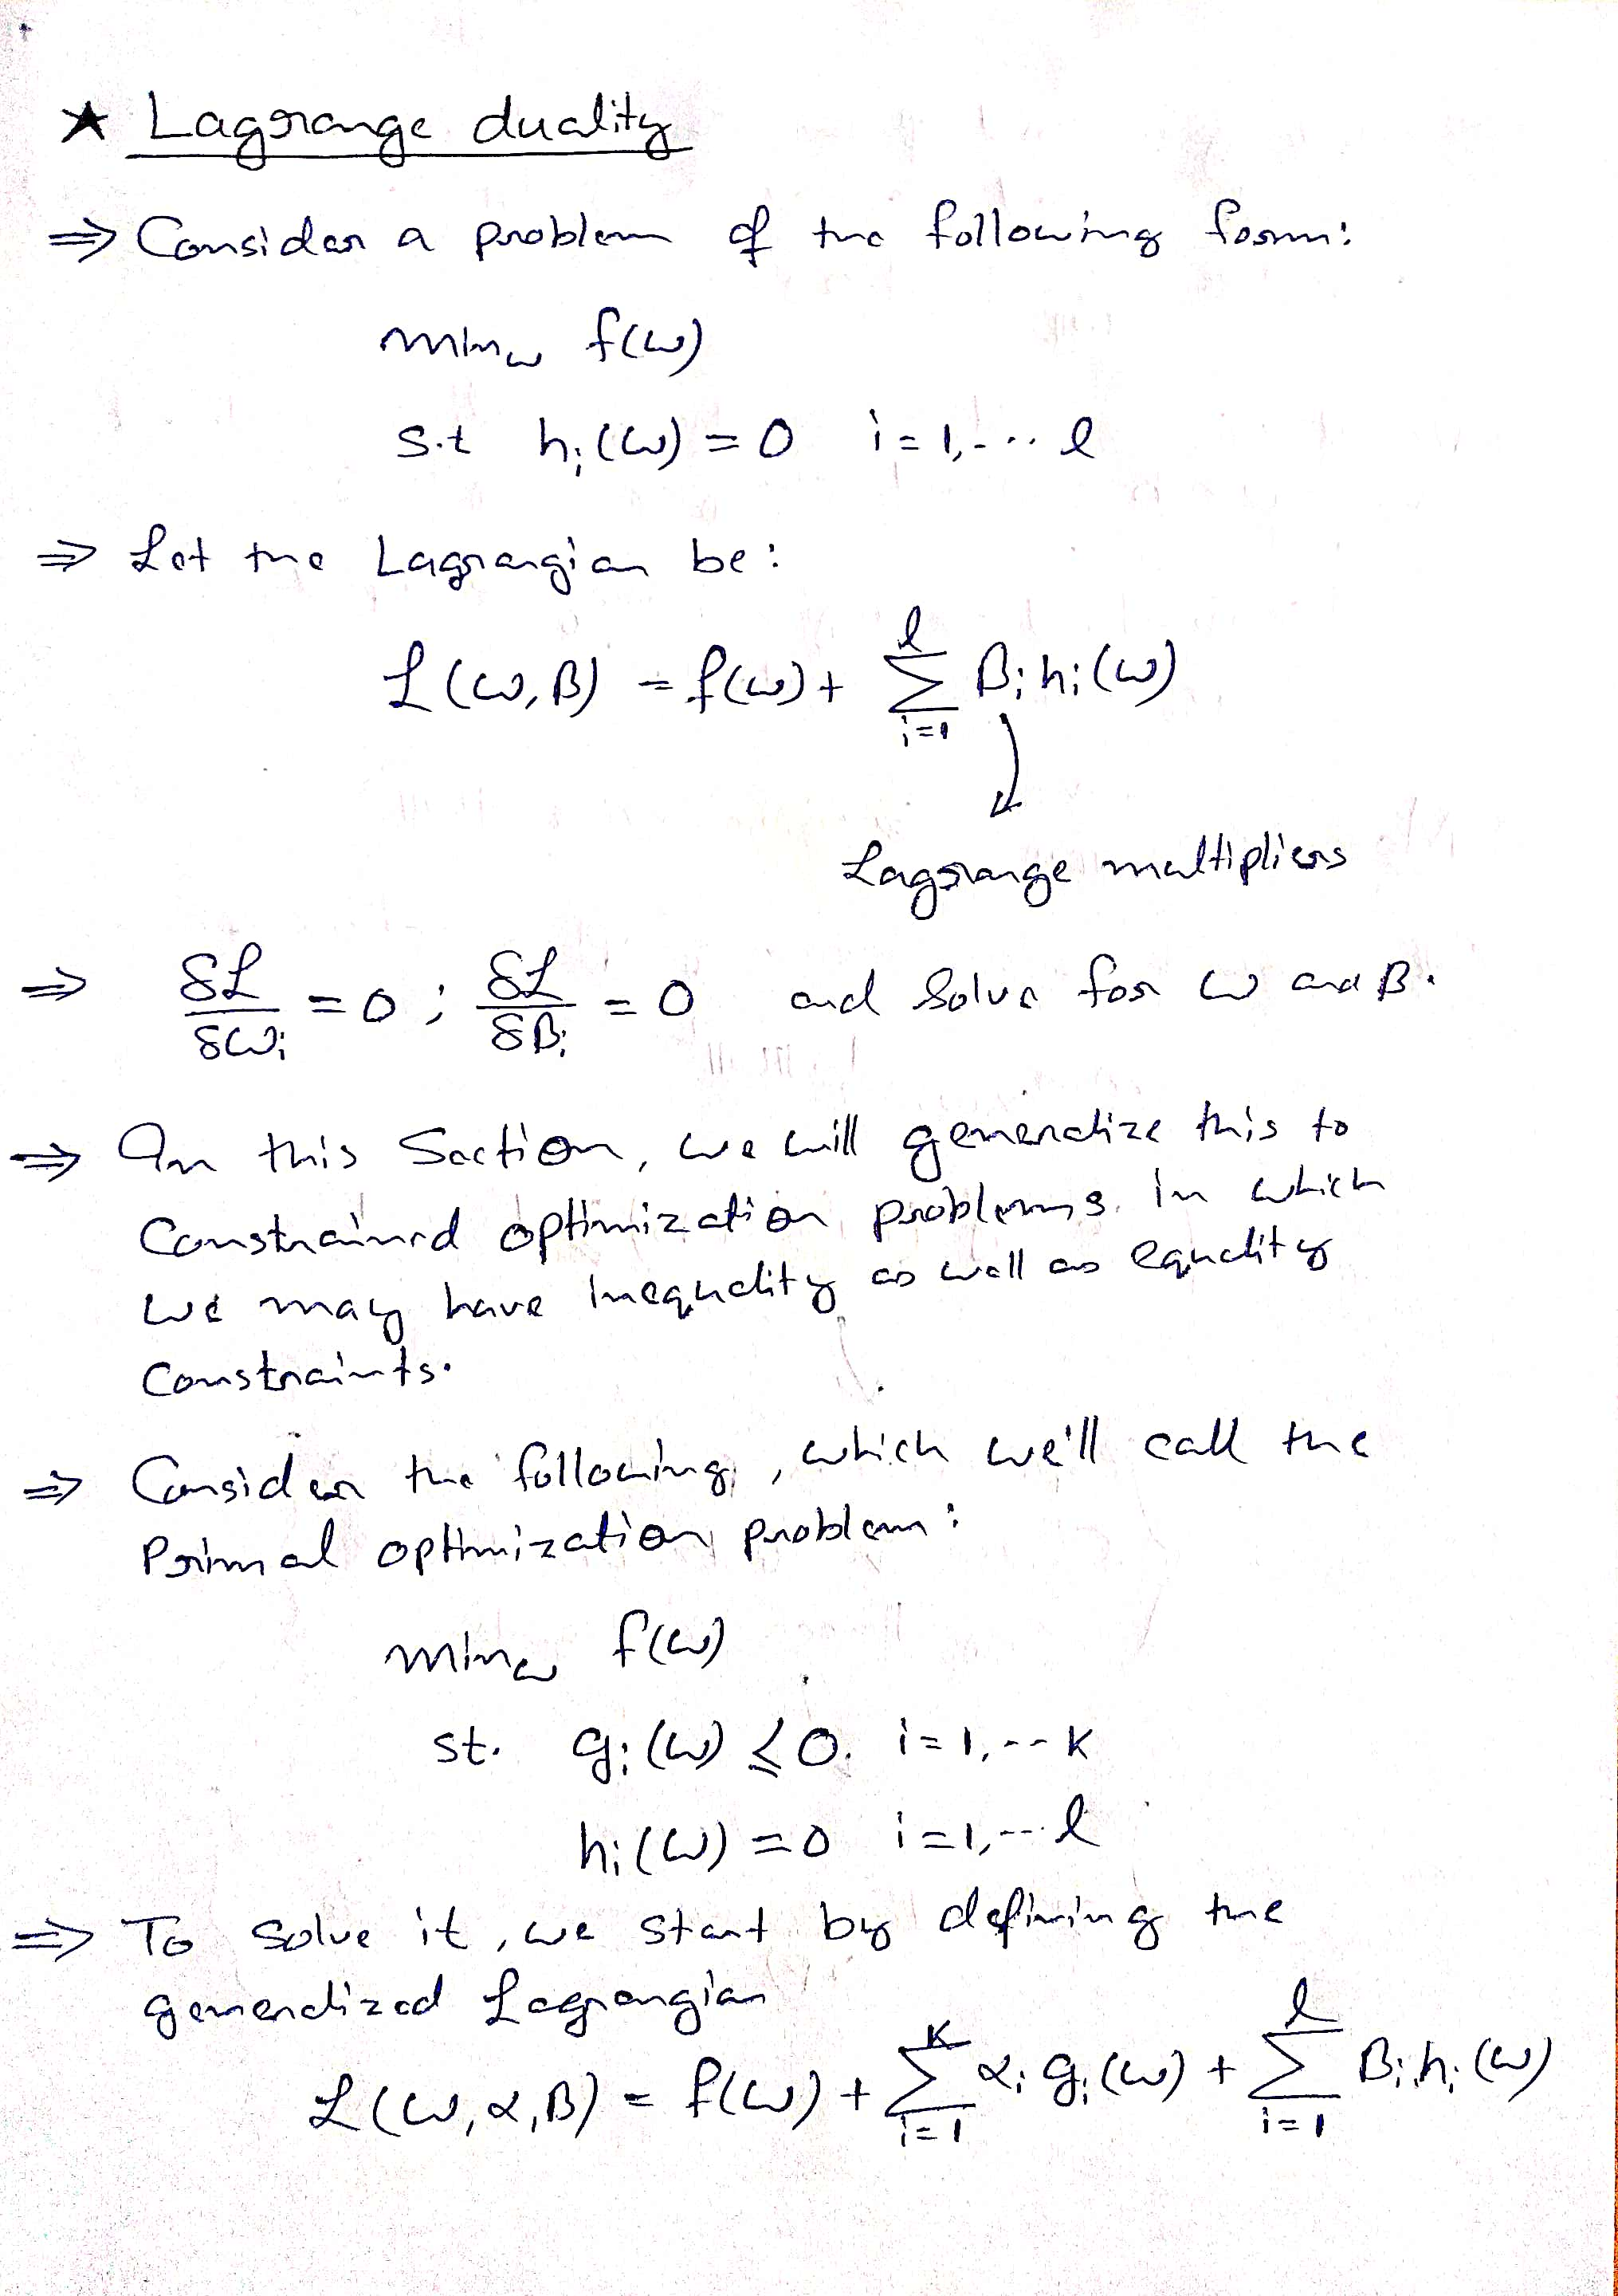 ★ Lagrange duality
⇒ Consider a problem of the following form:
min_w f(w)
s.t h_i(w) = 0 i = 1, ... l
⇒ Let the Lagrangian be:
L(w, β) = f(w) + Σ_{i=1}^{l} β_i h_i(w)
Lagrange multipliers
⇒ δL/δw_i = 0 ; δL/δβ_i = 0 and solve for w and β.
⇒ In this section, we will generalize this to
constrained optimization problems in which
we may have inequality as well as equality
constraints.
⇒ Consider the following, which we'll call the
Primal optimization problem:
min_w f(w)
st. g_i(w) ≤ 0. i = 1, -- k
h_i(w) = 0 i = 1, --- l
⇒ To solve it, we start by defining the
generalized Lagrangian
L(w, α, β) = f(w) + Σ_{i=1}^{k} α_i g_i(w) + Σ_{i=1}^{l} β_i h_i(w)